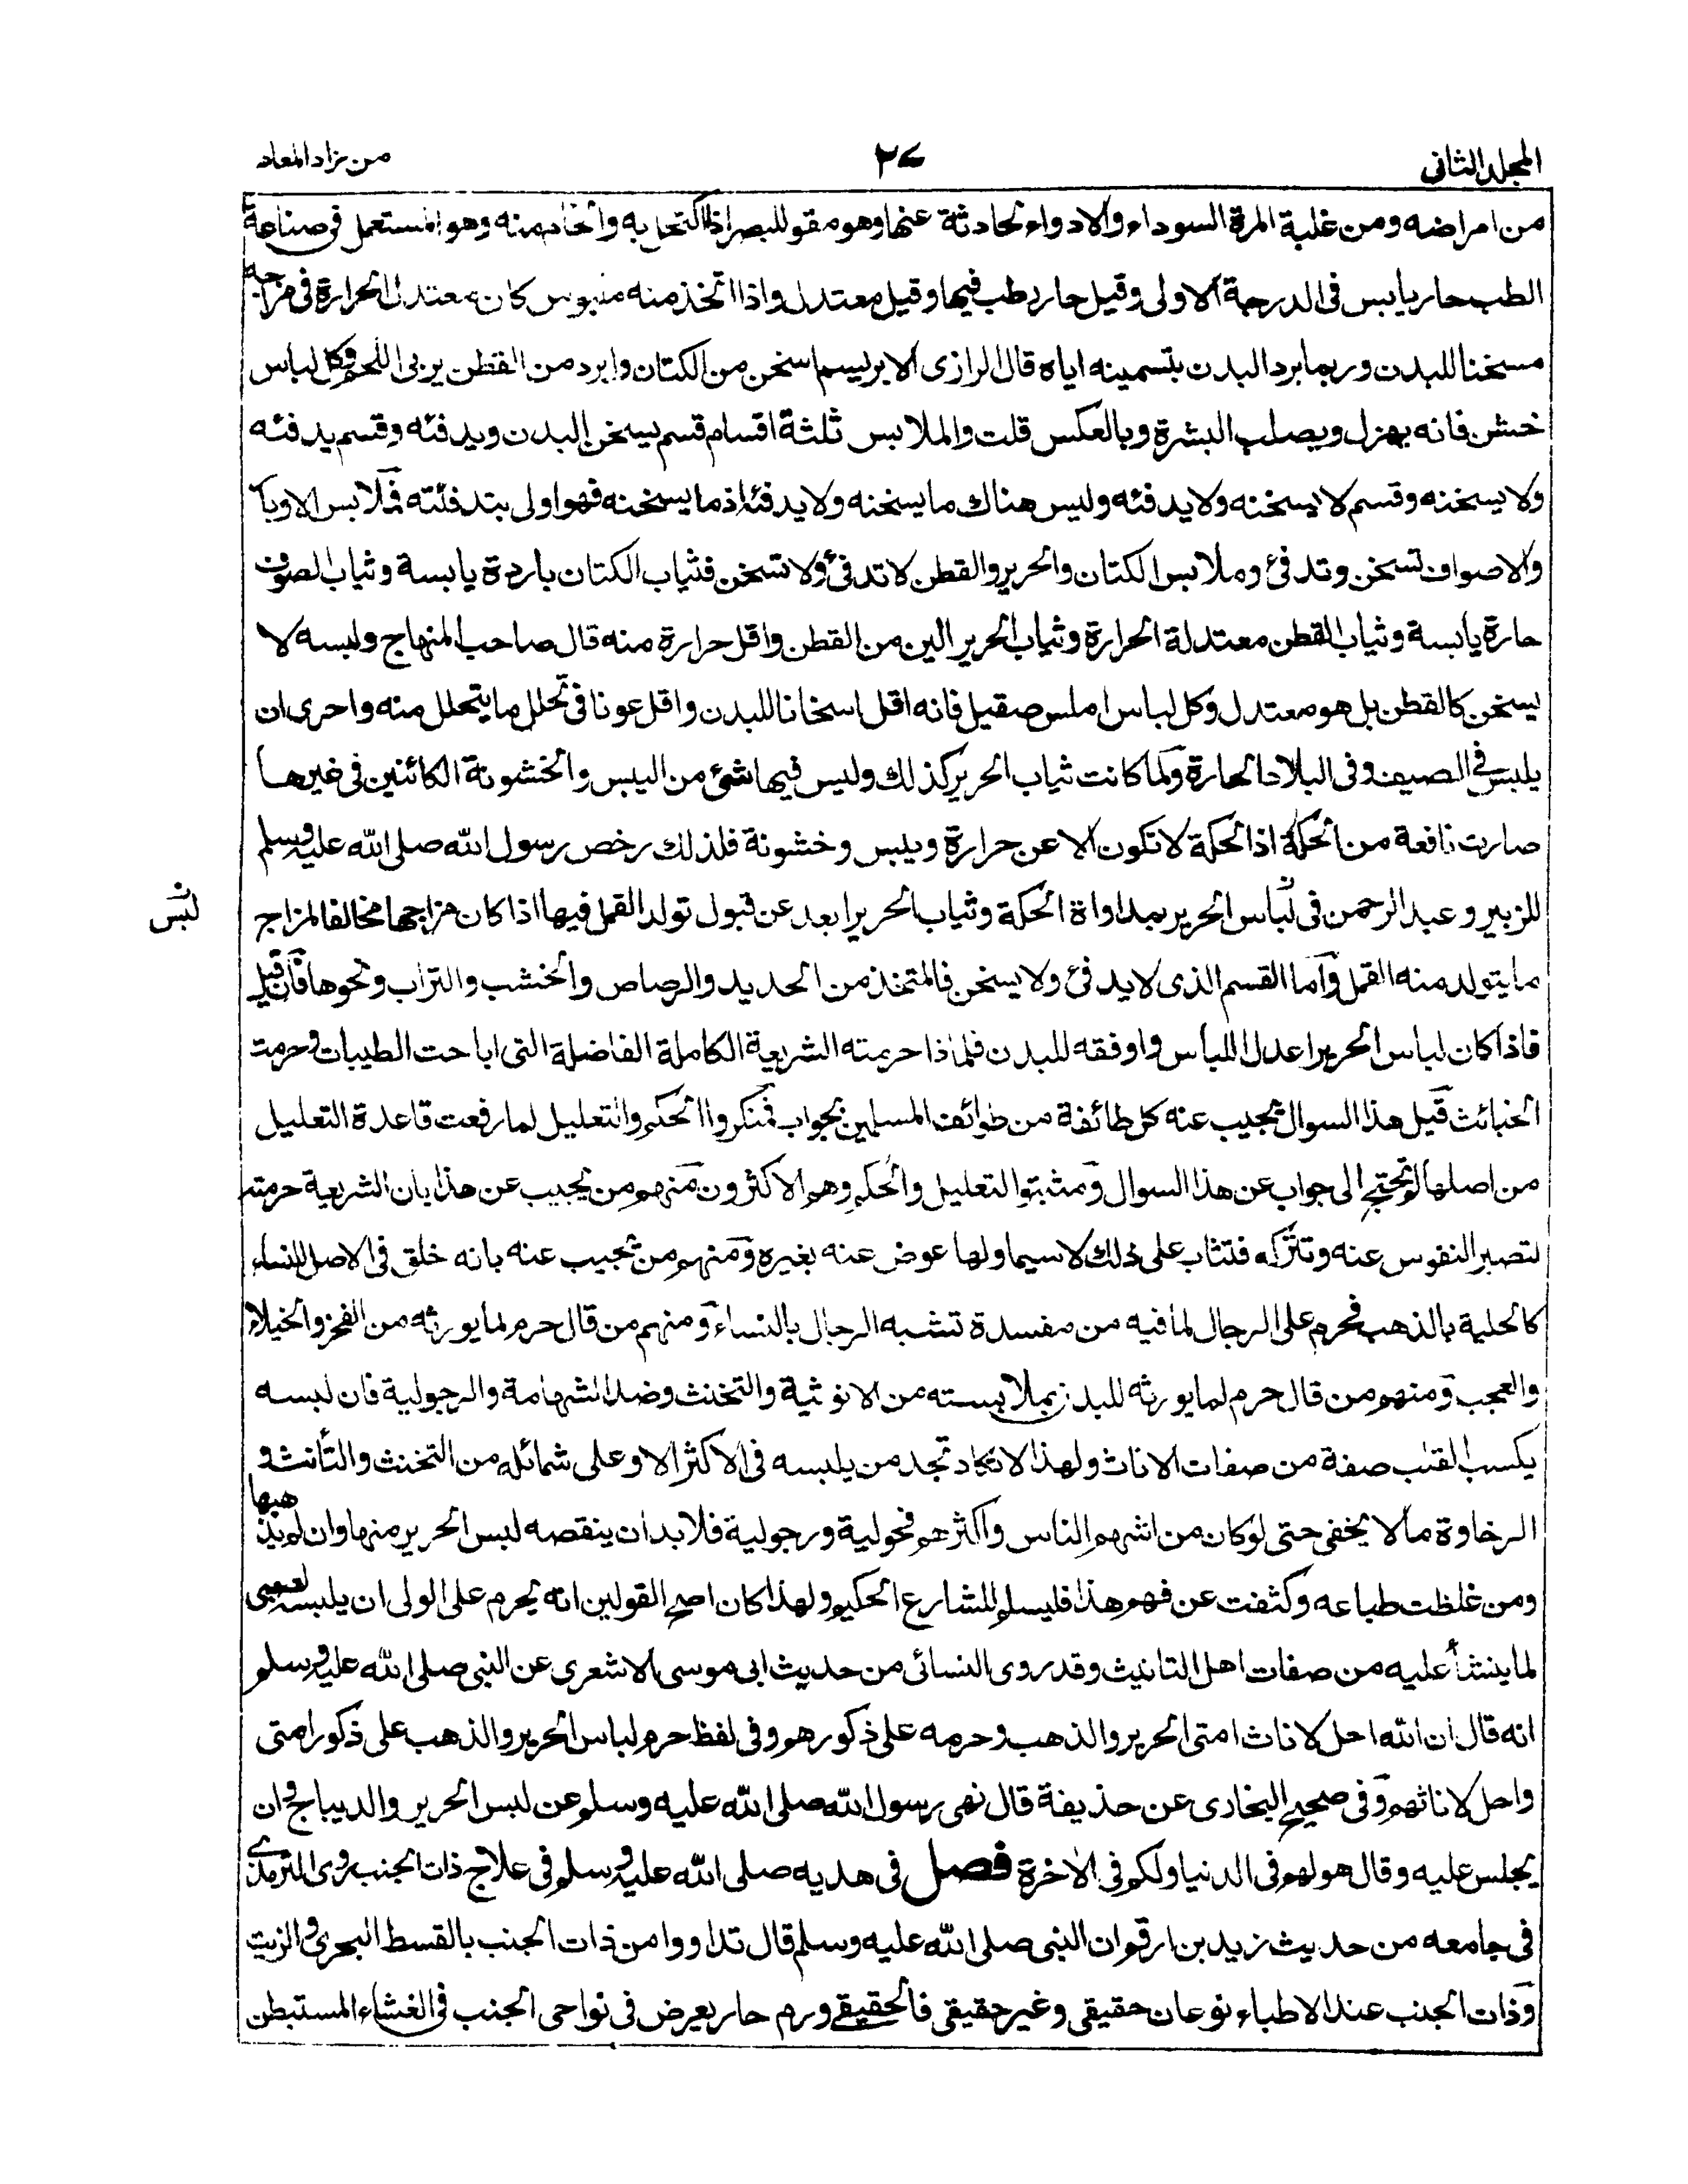 المجلد الثانى
٢٧
من زاد المعاد
من امراضه ومن غلبة المرة السوداء والادواء الحادثة عنها وهو مقو للبصر اذا اكتحل به والخام منه وهو المستعمل فى صناعة
الطب حار يابس فى الدرجة الاولى وقيل حار رطب فيها وقيل معتدل واذا اتخذ منه ملبوس كان معتدل الحرارة فى مزاجه
مسخنا للبدن وربما برد البدن بتسمينه اياه قال الرازى الابريسم اسخن من الكتان وابرد من القطن يربى اللحم وكل لباس
خشن فانه يهزل ويصلب البشرة وبالعكس قلت والملابس ثلثة اقسام قسم يسخن البدن ويدفئه وقسم يدفئه
ولا يسخنه وقسم لا يسخنه ولا يدفئه وليس هناك ما يسخنه ولا يدفئه اذ ما يسخنه فهو اولى بتدفئته فملابس الاوبار
والاصواف تسخن وتدفئ وملابس الكتان والحرير والقطن لا تدفئ ولا تسخن فثياب الكتان باردة يابسة وثياب الصوف
حارة يابسة وثياب القطن معتدلة الحرارة وثياب الحرير الين من القطن واقل حرارة منه قال صاحب المنهاج ولبسه لا
يسخن كالقطن بل هو معتدل وكل لباس املس صقيل فانه اقل اسخانا للبدن واقل عونا فى تحلل ما يتحلل منه واحرى ان
يلبس فى الصيف وفى البلاد الحارة ولما كانت ثياب الحرير كذلك وليس فيها شئ من اليبس والخشونة الكائنين فى غيرها
صارت نافعة من الحكة اذ الحكة لا تكون الا عن حرارة ويبس وخشونة فلذلك رخص رسول الله صلى الله عليه وسلم
للزبير وعبد الرحمن فى لباس الحرير بمداواة الحكة وثياب الحرير ابعد عن قبول تولد القمل فيها اذا كان مزاجها مخالفا لمزاج
لبس
ما يتولد منه القمل واما القسم الذى لا يدفئ ولا يسخن فالمتخذ من الحديد والرصاص والخشب والتراب ونحوها فان قيل
فاذا كان لباس الحرير اعدل اللباس واوفقه للبدن فلماذا حرمته الشريعة الكاملة الفاضلة التى اباحت الطيبات وحرمت
الخبائث قيل هذا السوال يجيب عنه كل طائفة من طوائف المسلمين بجواب فمنكروا الحكم والتعليل لما رفعت قاعدة التعليل
من اصلها لم تحتج الى جواب عن هذا السوال ومثبتوا التعليل والحكم وهم الاكثرون منهم من يجيب عن هذا بان الشريعة حرمته
لتصبر النفوس عنه وتتركه فتثاب على ذلك لا سيما ولها عوض عنه بغيره ومنهم من يجيب عنه بانه خلق فى الاصل للنساء
كالحلية بالذهب فحرم على الرجال لما فيه من مفسدة تشبه الرجال بالنساء ومنهم من قال حرم لما يورثه من الفخر والخيلاء
والعجب ومنهم من قال حرم لما يورثه للبدن بملابسته من الانوثية والتخنث وضد الشهامة والرجولية فان لبسه
يكسب القلب صفة من صفات الاناث ولهذا لا تكاد تجد من يلبسه فى الاكثر الا وعلى شمائله من التخنث والتأنث و
الرخاوة ما لا يخفى حتى لو كان من اشهم الناس واكثرهم فحولية ورجولية فلا بد ان ينقصه لبس الحرير منها وان لم يذهبها
ومن غلظت طباعه وكثفت عن فهم هذا فليسلم للشارع الحكيم ولهذا كان اصح القولين انه يحرم على الولى ان يلبسه لصبى
لما ينشأ عليه من صفات اهل التانيث وقد روى النسائى من حديث ابى موسى الاشعرى عن النبى صلى الله عليه وسلم
انه قال ان الله احل لاناث امتى الحرير والذهب وحرمه على ذكورهم وفى لفظ حرم لباس الحرير والذهب على ذكور امتى
واحل لاناثهم وفى صحيح البخارى عن حذيفة قال نهى رسول الله صلى الله عليه وسلم عن لبس الحرير والديباج وان
يجلس عليه وقال هو لهم فى الدنيا ولكم فى الاخرة فصل فى هديه صلى الله عليه وسلم فى علاج ذات الجنب روى الترمذى
فى جامعه من حديث زيد بن ارقم ان النبى صلى الله عليه وسلم قال تداووا من ذات الجنب بالقسط البحرى والزيت
وذات الجنب عند الاطباء نوعان حقيقى وغير حقيقى فالحقيقى ورم حار يعرض فى نواحى الجنب فى الغشاء المستبطن